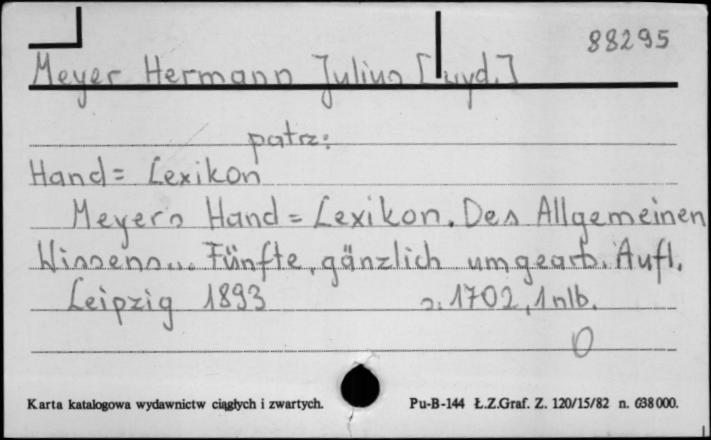 88295
Meyer Hermann Julius [wyd.]
patrz:
Hand= Lexikon
Meyers Hand=Lexikon. Des Allgemeinen
Wissens... Fünfte, gänzlich umgearb. Aufl.
Leipzig 1893 s. 1702, 1 nlb.
O
Karta katalogowa wydawnictw ciągłych i zwartych. Pu-B-144 Ł.Z.Graf. Z. 120/15/82 n. 638000.